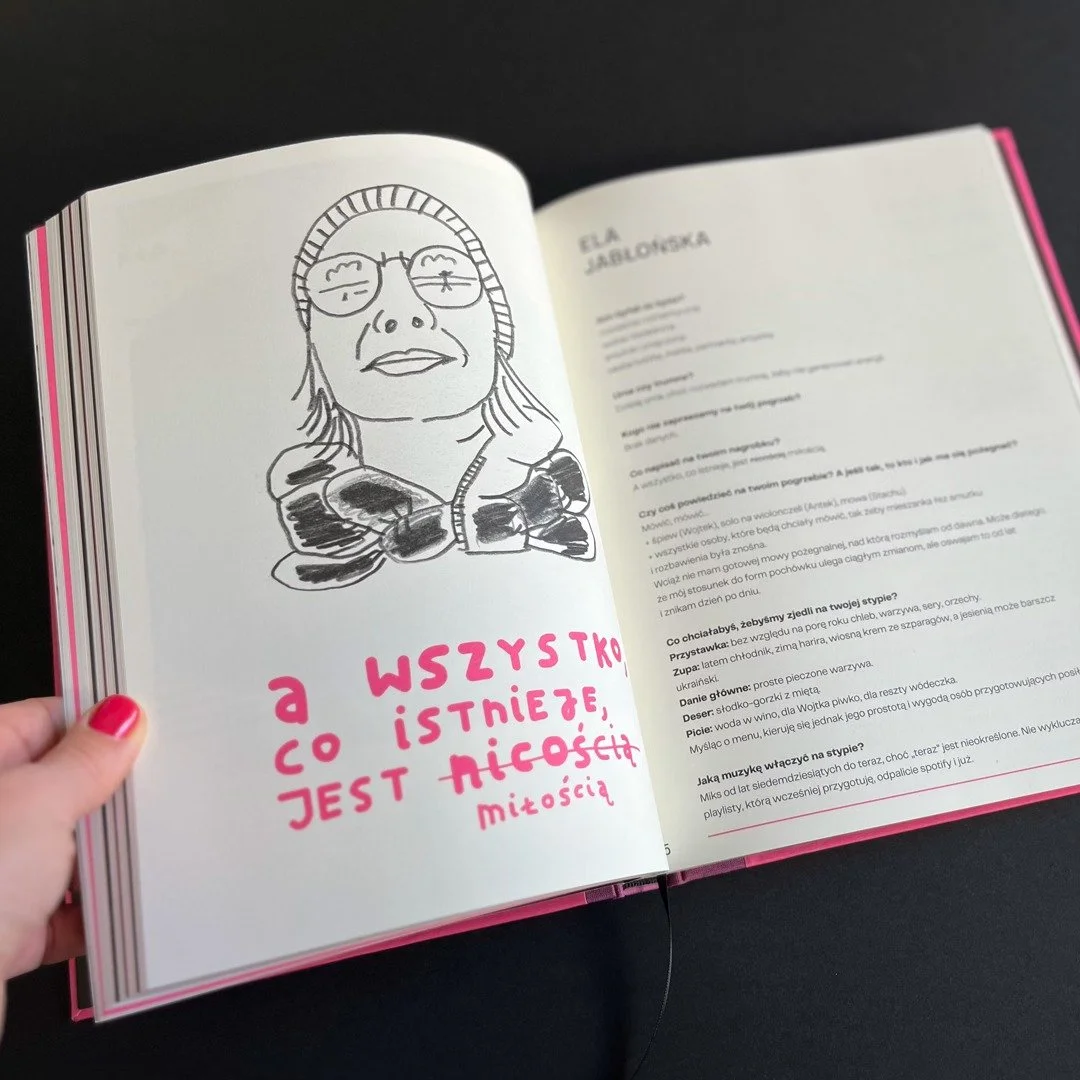 a WSZYSTKO,
CO iSTNIEJE,
JEST nicością
miłością
5
ELA
JABŁOŃSKA
Urna czy trumna?
Kogo nie zapraszamy na twój pogrzeb?
Brak danych.
Co napisać na twoim nagrobku?
A wszystko, co istnieje, jest nicością miłością.
Czy coś powiedzieć na twoim pogrzebie? A jeśli tak, to kto i jak ma się pożegnać?
Mówić, mówić...
+ śpiew (Wojtek), solo na wiolonczeli (Antek), mowa (Stachu)
+ wszystkie osoby, które będą chciały mówić, tak żeby mieszanka łez smutku
i rozbawienia była znośna.
Wciąż nie mam gotowej mowy pożegnalnej, nad którą rozmyślam od dawna. Może dlatego,
że mój stosunek do form pochówku ulega ciągłym zmianom, ale oswajam to od lat
i znikam dzień po dniu.
Co chciałabyś, żebyśmy zjedli na twojej stypie?
Przystawka: bez względu na porę roku chleb, warzywa, sery, orzechy.
Zupa: latem chłodnik, zimą harira, wiosną krem ze szparagów, a jesienią może barszcz
ukraiński.
Danie główne: proste pieczone warzywa.
Deser: słodko-gorzki z miętą.
Picie: woda w wino, dla Wojtka piwko, dla reszty wódeczka.
Myśląc o menu, kieruję się jednak jego prostotą i wygodą osób przygotowujących posił
Jaką muzykę włączyć na stypie?
Miks od lat siedemdziesiątych do teraz, choć „teraz” jest nieokreślone. Nie wyklucza
playlisty, którą wcześniej przygotuję, odpalicie spotify i już.